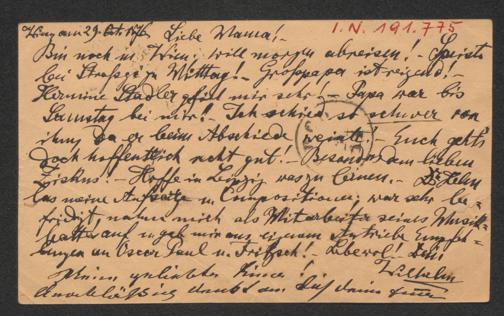 I.N. 191.775
Wien am 29. Liebe Mama!
Bin noch in Wien; will morgen abreisen! Speiste
bei zu Mittag! Großpapa ist reizend!
Hermine Stadler gefiel mir sehr! Papa war bis
Samstag bei mir! Ich schied so schwer von
ihm, da er beim Abschiede weinte Euch geht's
doch hoffentlich recht gut! Besonders dem lieben
Ziskus! Hoffe in Leipzig was zu lernen. Dr.
las meine Aufsätze u. Compositionen, war sehr be-
friedigt, nahm mich als Mitarbeiter seines Musik-
blattes auf u. gab mir aus eigenem Antrieb Empfeh-
lungen an Oscar Paul u. Fritzsch! Lebwol! Dein
Wilhelm
Meine geliebte
denkt an Dich Deine